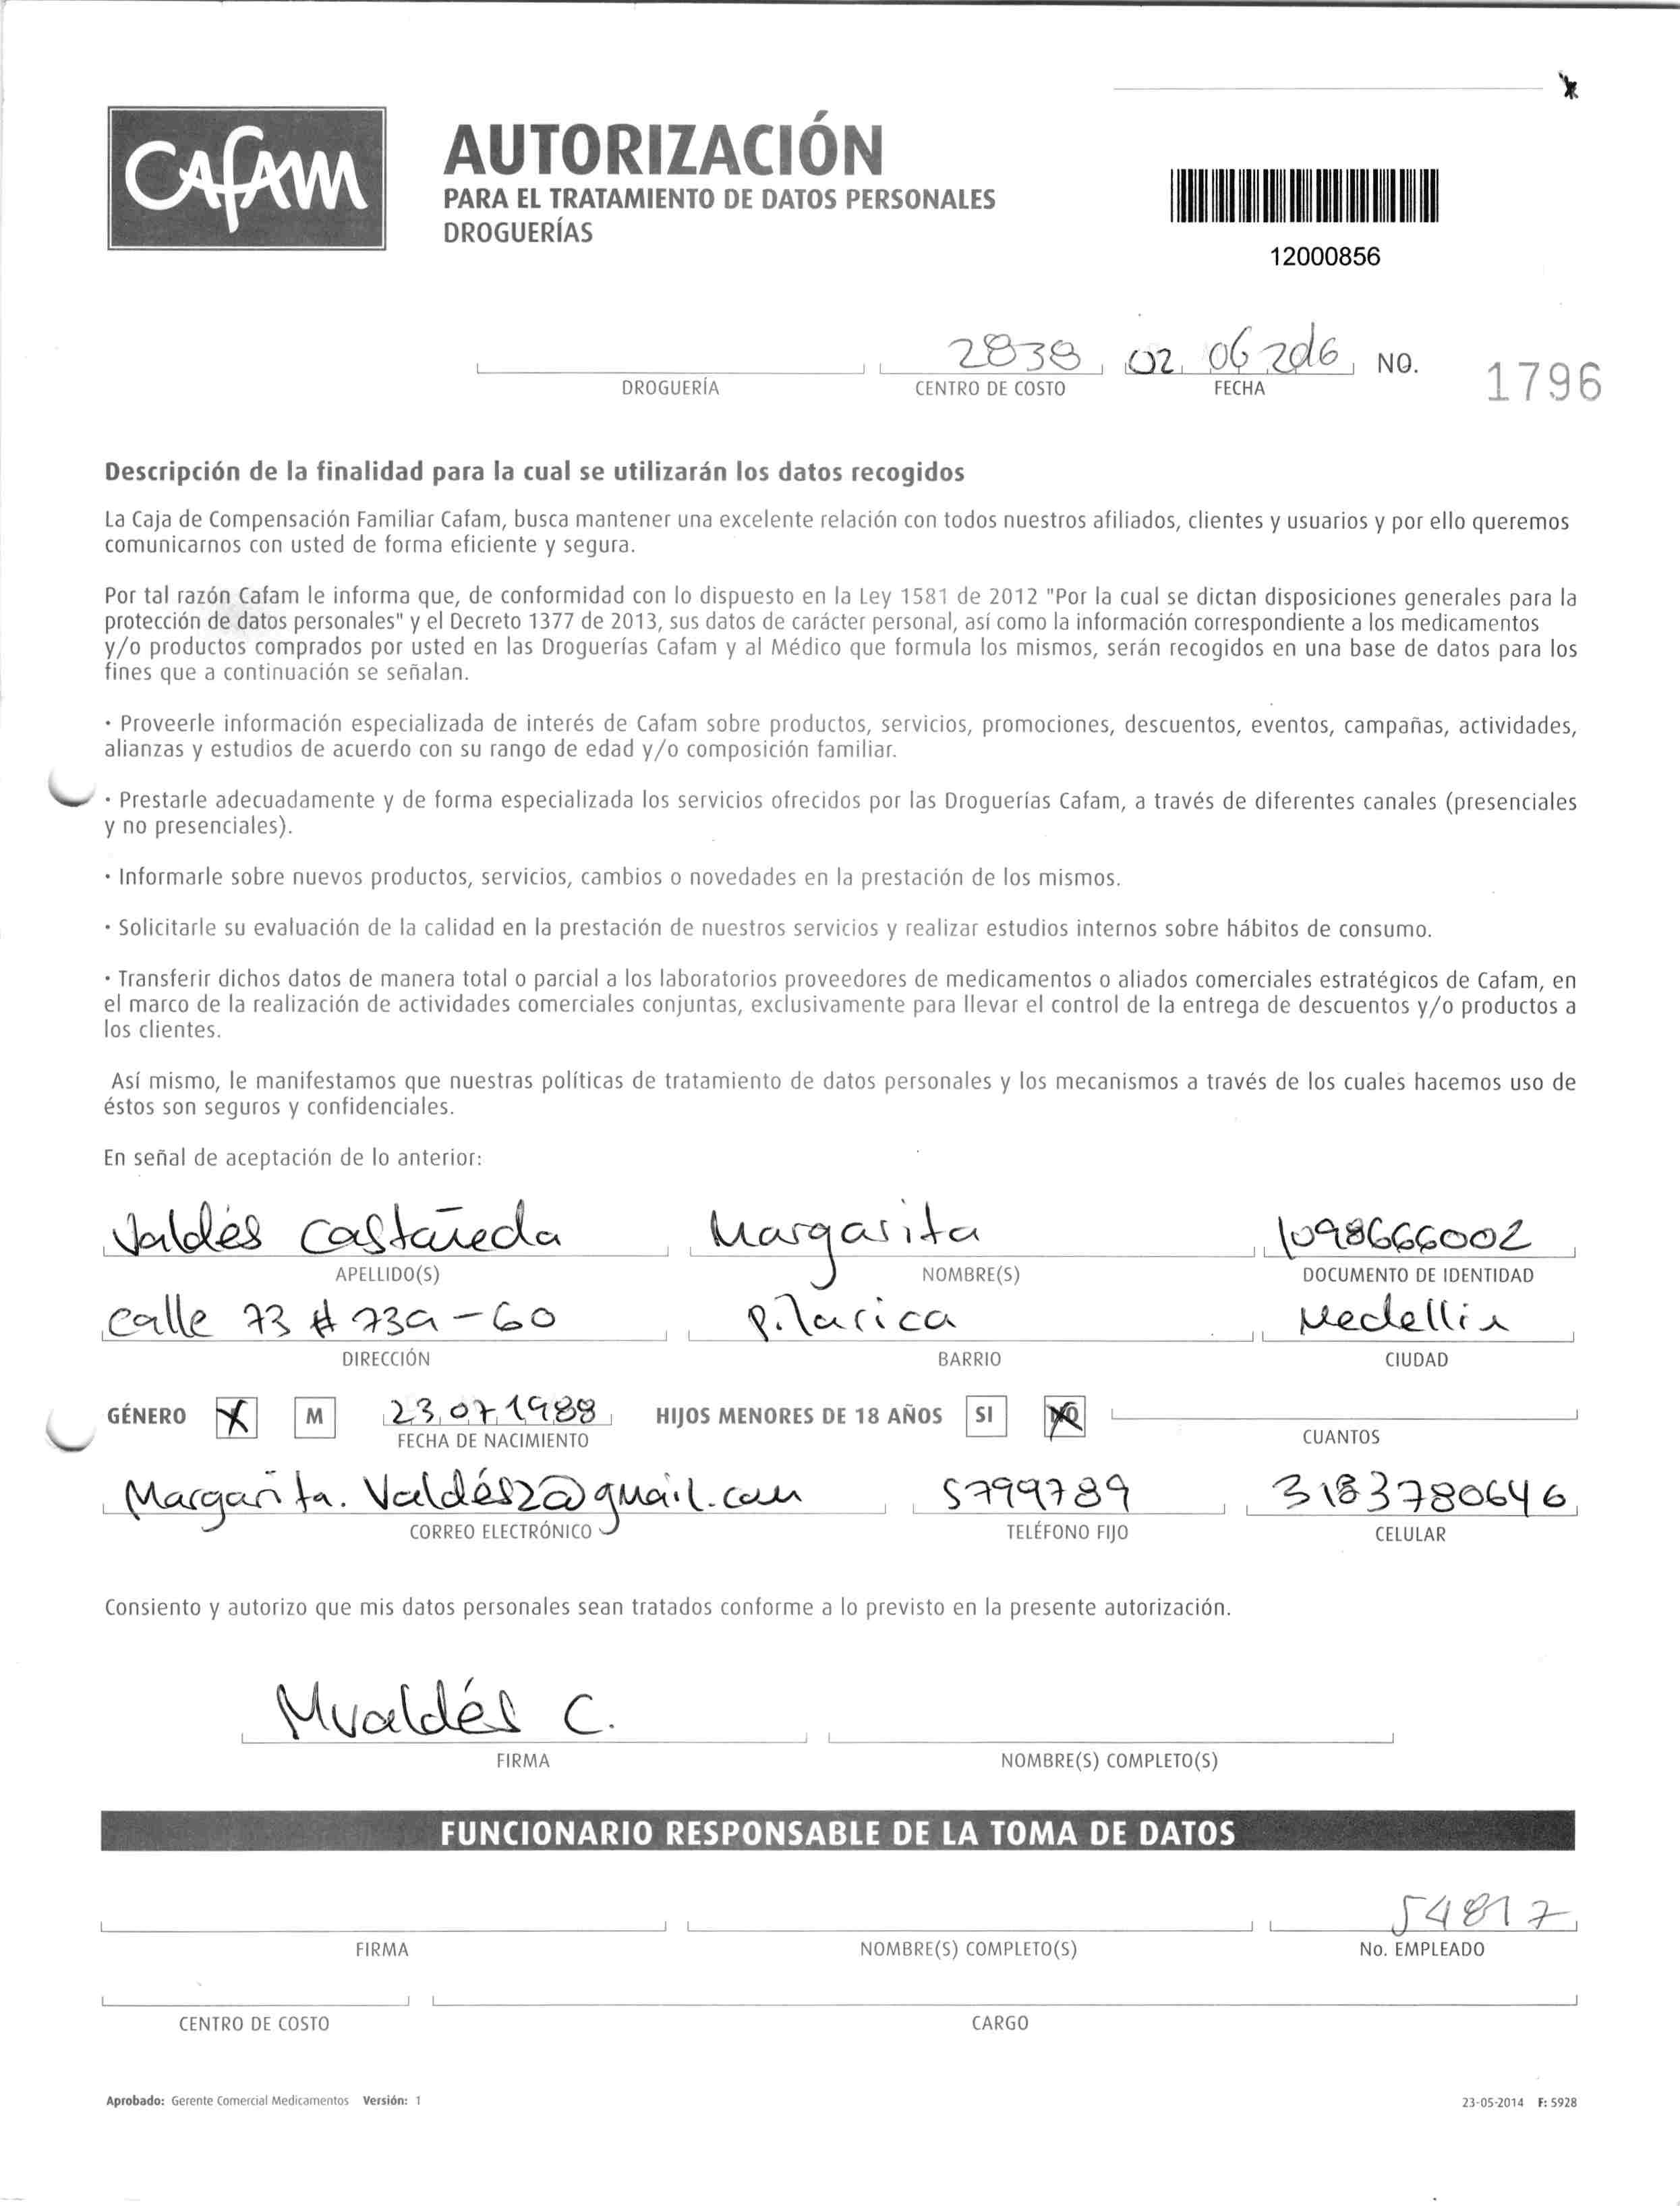 CAFAM
AUTORIZACIÓN
PARA EL TRATAMIENTO DE DATOS PERSONALES
DROGUERÍAS
12000856
2838 02 06 2016 NO. 1796
DROGUERÍA CENTRO DE COSTO FECHA
Descripción de la finalidad para la cual se utilizarán los datos recogidos
La Caja de Compensación Familiar Cafam, busca mantener una excelente relación con todos nuestros afiliados, clientes y usuarios y por ello queremos
comunicarnos con usted de forma eficiente y segura.
Por tal razón Cafam le informa que, de conformidad con lo dispuesto en la Ley 1581 de 2012 "Por la cual se dictan disposiciones generales para la
protección de datos personales" y el Decreto 1377 de 2013, sus datos de carácter personal, así como la información correspondiente a los medicamentos
y/o productos comprados por usted en las Droguerías Cafam y al Médico que formula los mismos, serán recogidos en una base de datos para los
fines que a continuación se señalan.
· Proveerle información especializada de interés de Cafam sobre productos, servicios, promociones, descuentos, eventos, campañas, actividades,
alianzas y estudios de acuerdo con su rango de edad y/o composición familiar.
· Prestarle adecuadamente y de forma especializada los servicios ofrecidos por las Droguerías Cafam, a través de diferentes canales (presenciales
y no presenciales).
· Informarle sobre nuevos productos, servicios, cambios o novedades en la prestación de los mismos.
· Solicitarle su evaluación de la calidad en la prestación de nuestros servicios y realizar estudios internos sobre hábitos de consumo.
· Transferir dichos datos de manera total o parcial a los laboratorios proveedores de medicamentos o aliados comerciales estratégicos de Cafam, en
el marco de la realización de actividades comerciales conjuntas, exclusivamente para llevar el control de la entrega de descuentos y/o productos a
los clientes.
Así mismo, le manifestamos que nuestras políticas de tratamiento de datos personales y los mecanismos a través de los cuales hacemos uso de
éstos son seguros y confidenciales.
En señal de aceptación de lo anterior:
Valdés Castañeda Margarita 1098666002
APELLIDO(S) NOMBRE(S) DOCUMENTO DE IDENTIDAD
Calle 73 # 73a - 60 Pilarica Medellin
DIRECCIÓN BARRIO CIUDAD
GÉNERO X M 23 07 1988 HIJOS MENORES DE 18 AÑOS SI NO
FECHA DE NACIMIENTO CUANTOS
Margarita.Valdés2@gmail.com 5799789 3183780646
CORREO ELECTRÓNICO TELÉFONO FIJO CELULAR
Consiento y autorizo que mis datos personales sean tratados conforme a lo previsto en la presente autorización.
Mvaldés C.
FIRMA NOMBRE(S) COMPLETO(S)
FUNCIONARIO RESPONSABLE DE LA TOMA DE DATOS
54817
FIRMA NOMBRE(S) COMPLETO(S) No. EMPLEADO
CENTRO DE COSTO CARGO
Aprobado: Gerente Comercial Medicamentos Versión: 1 23-05-2014 F: 5928